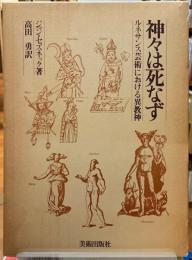 神々は死なず
ルネサンス芸術における異教神
ジャン・セズネック著
高田 勇訳
美術出版社